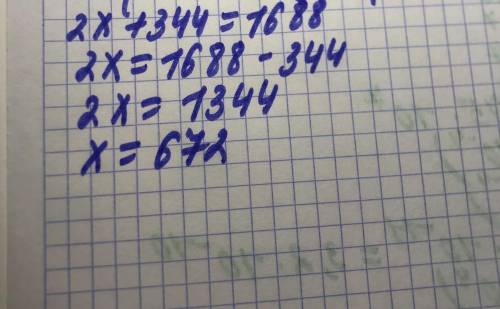 2x+344=1688
2x=1688-344
2x=1344
x=672